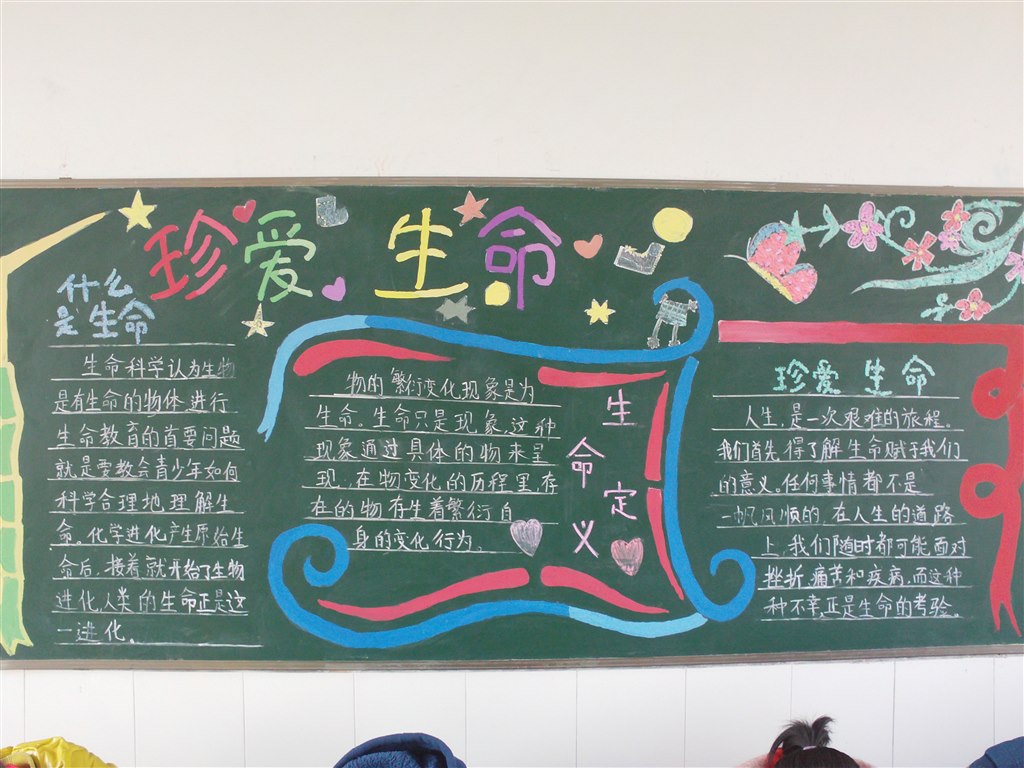 珍爱 生命
什么
是生命
生命科学认为生物
是有生命的物体进行
生命教育的首要问题
就是要教会青少年如何
科学合理地理解生
命。化学进化产生原始生
命后，接着就开始了生物
进化,人类的生命正是这
一进化。
物的繁衍变化现象是为
生命。生命只是现象，这种
现象通过具体的物来呈
现，在物变化的历程里,存
在的物存生着繁衍自
身的变化行为。
生命定义
珍爱 生命
人生,是一次艰难的旅程。
我们首先得了解生命赋于我们
的意义。任何事情都不是
一帆风顺的,在人生的道路
上,我们随时都可能面对
挫折,痛苦和疾病,而这种
种不幸,正是生命的考验。